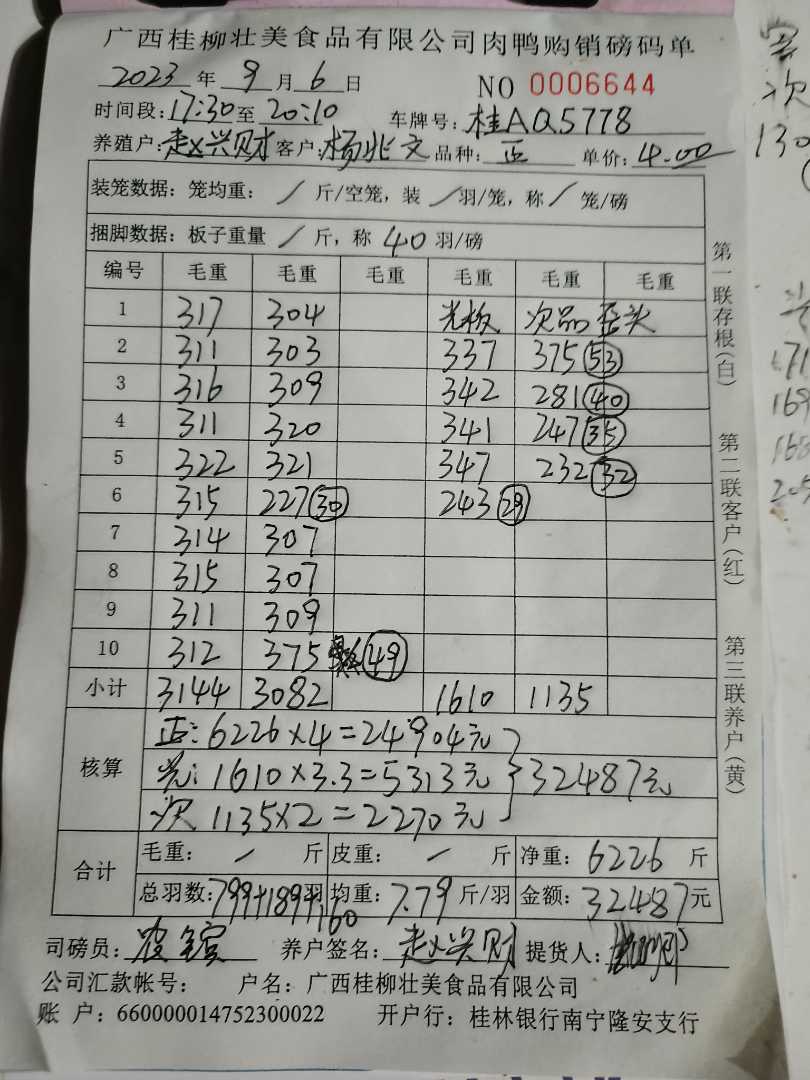 广西桂柳壮美食品有限公司肉鸭购销磅码单
2023 年 9 月 6 日 NO 0006644
时间段: 17:30 至 20:10 车牌号: 桂AQ5778
养殖户: 赵兴财 客户: 杨兆文 品种: 正 单价: 4.00
装笼数据: 笼均重: / 斤/空笼, 装 / 羽/笼, 称 / 笼/磅
捆脚数据: 板子重量 / 斤, 称 40 羽/磅
编号 毛重 毛重 毛重 毛重 毛重 毛重
1 317 304 光板 次品 歪头
2 311 303 337 375 53
3 316 309 342 281 40
4 311 320 341 247 35
5 322 321 347 232 32
6 315 227 30 243 29
7 314 307
8 315 307
9 311 309
10 312 375 49
小计 3144 3082 1610 1135
核算
正: 6226×4=24904元
光: 1610×3.3=5313元 32487元
次 1135×2=2270元
合计
毛重: / 斤 皮重: / 斤 净重: 6226 斤
总羽数: 799+189+160 羽 均重: 7.79 斤/羽 金额: 32487 元
司磅员: 养户签名: 赵兴财 提货人:
公司汇款帐号: 户名: 广西桂柳壮美食品有限公司
账 户: 660000014752300022 开户行: 桂林银行南宁隆安支行
第一联存根(白) 第二联客户(红) 第三联养户(黄)
次
130
71
169
168
205